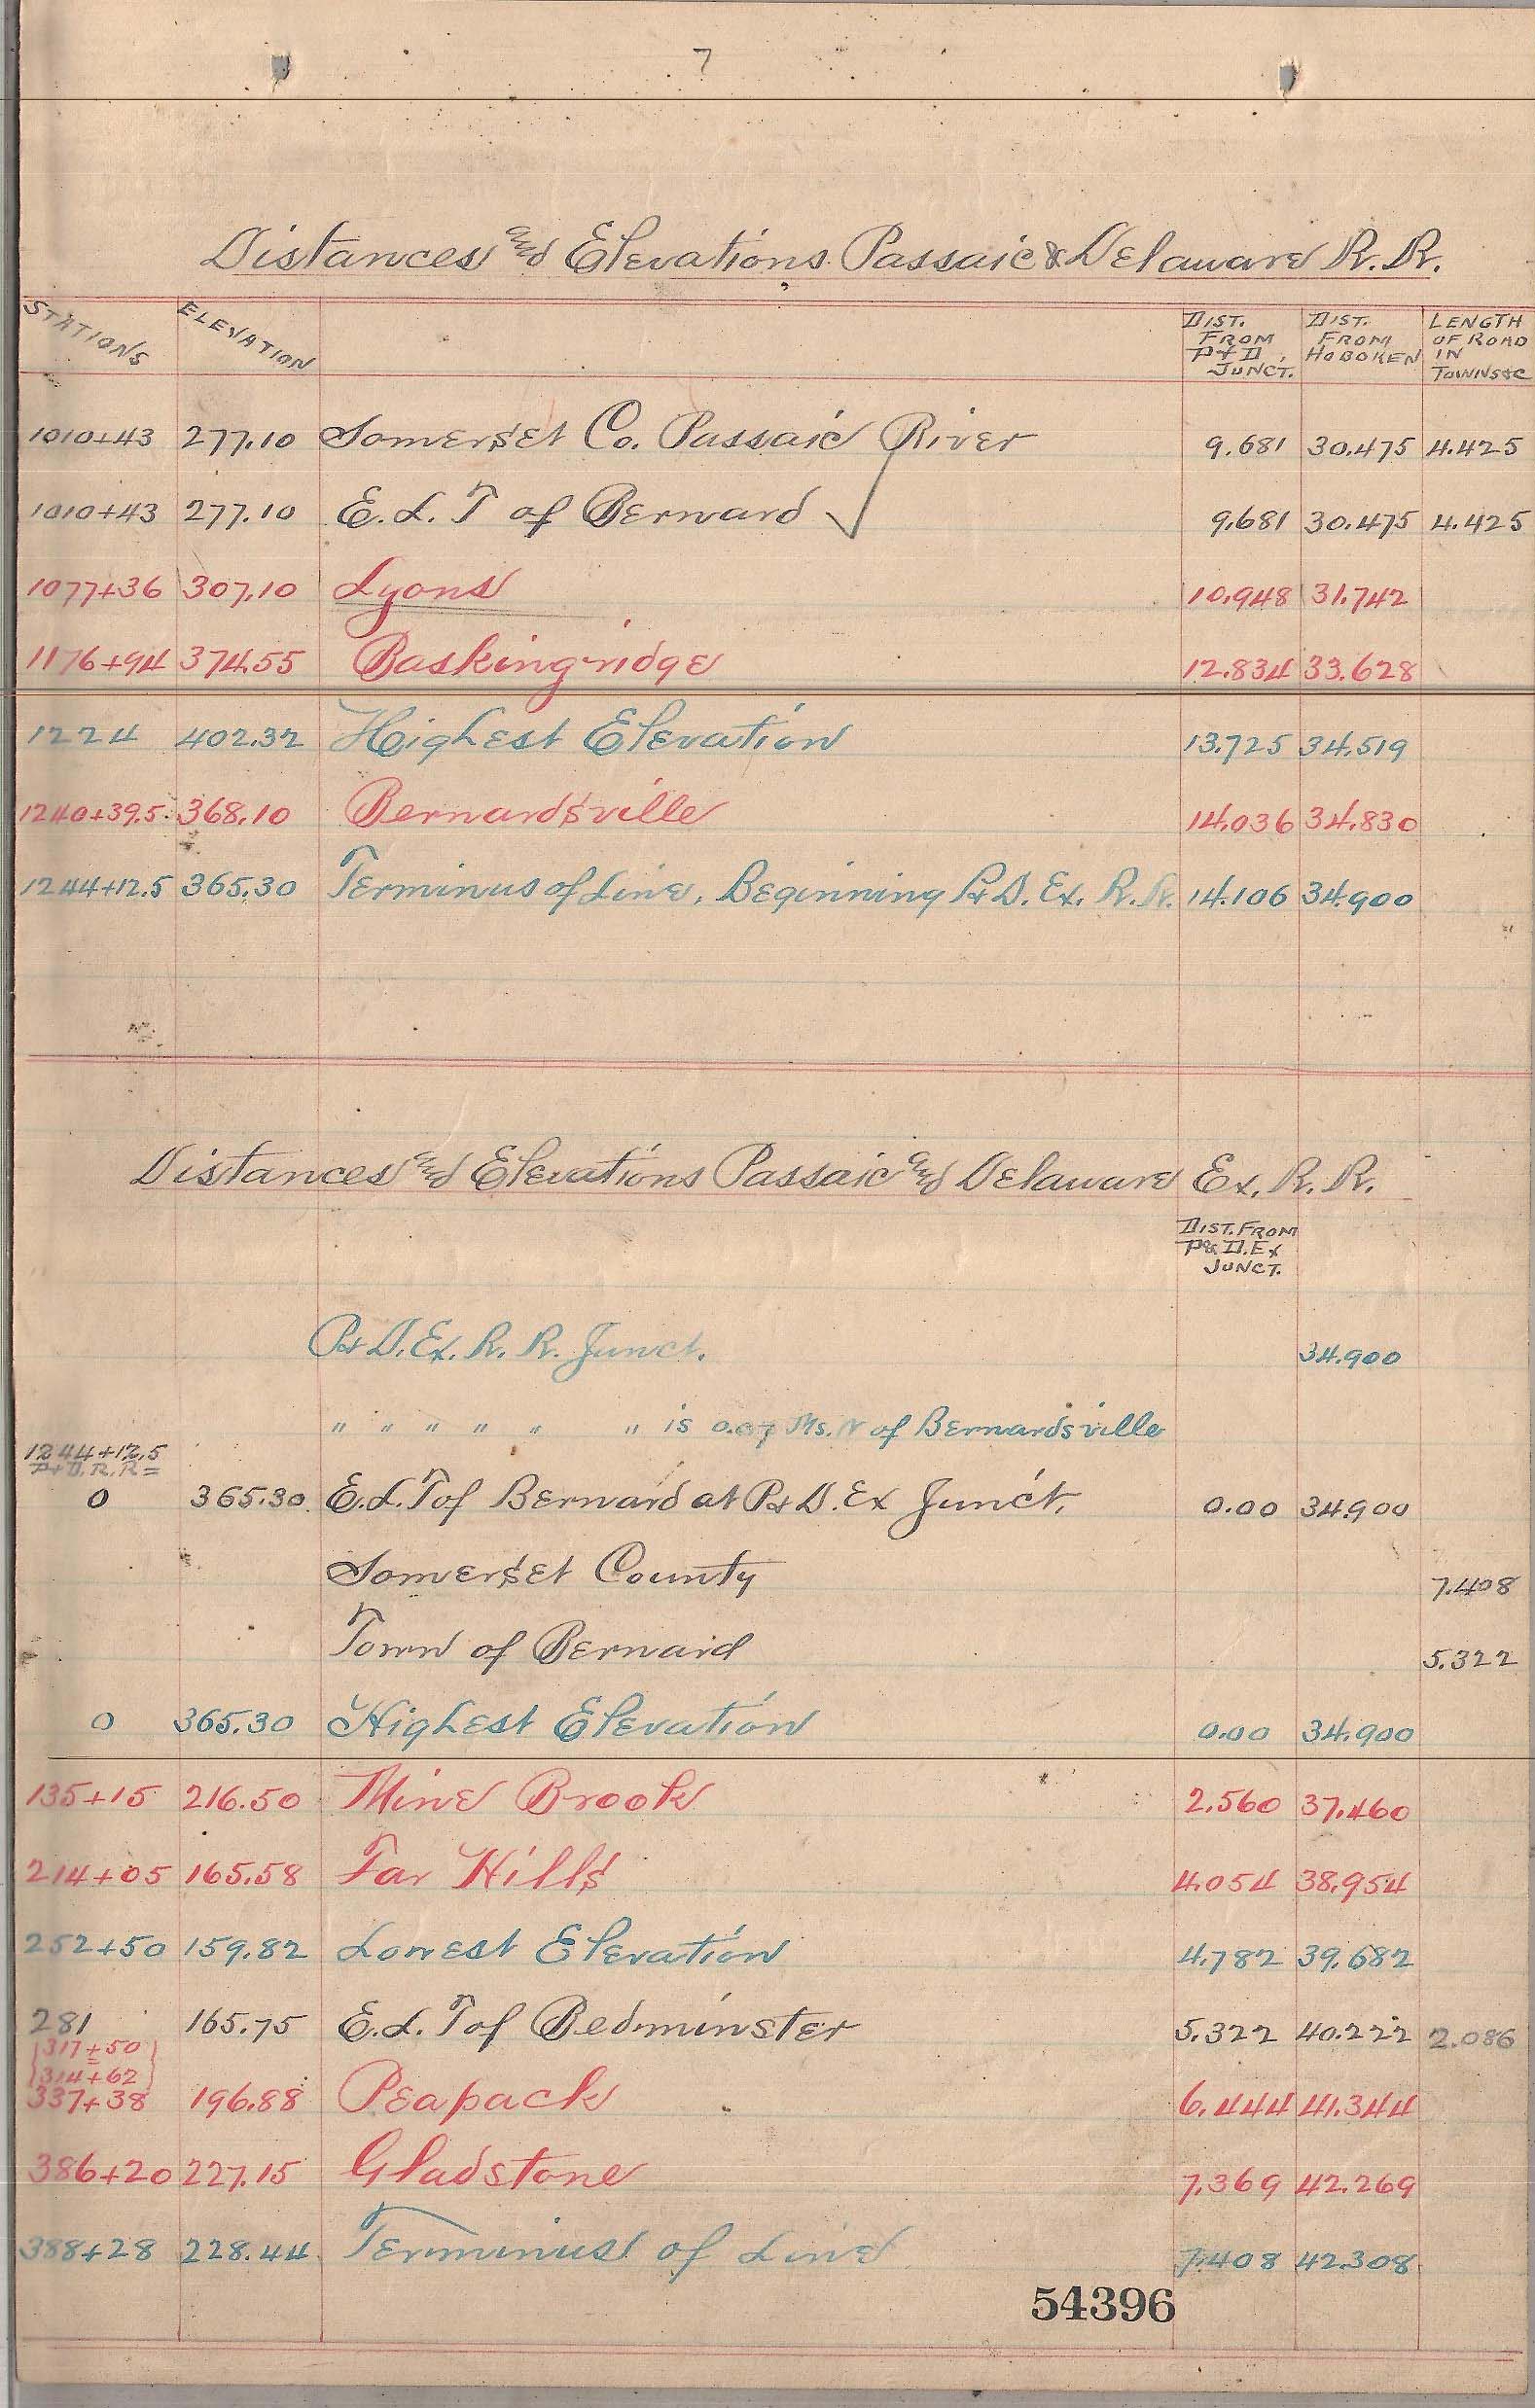 7
Distances and Elevations Passaic & Delaware R.R.
STATIONS ELEVATION DIST. FROM P+D JUNCT. DIST. FROM HOBOKEN LENGTH OF ROAD IN TOWNS&C
1010+43 277.10 Somerset Co. Passaic River 9.681 30.475 4.425
1010+43 277.10 E.L.T of Bernard 9.681 30.475 4.425
1077+36 307.10 Lyons 10.948 31.742
1176+94 374.55 Baskingridge 12.834 33.628
1224 402.32 Highest Elevation 13.725 34.519
1240+39.5 368.10 Bernardsville 14.036 34.830
1244+12.5 365.30 Terminus of Line, Beginning P+D. Ex. R.R. 14.106 34.900
Distances and Elevations Passaic and Delaware Ex. R.R.
DIST. FROM P& D.Ex JUNCT.
P+D. Ex. R. R. Junct. 34.900
" " " " " " is 0.07 Ms. N of Bernardsville
1244+12.5
P+D.R.R=
0 365.30 E.L.T of Bernard at P+D. Ex Junct. 0.00 34.900
Somerset County 7.408
Town of Bernard 5.322
0 365.30 Highest Elevation 0.00 34.900
135+15 216.50 Mine Brook 2.560 37.460
214+05 165.58 Far Hills 4.054 38.954
252+50 159.82 Lowest Elevation 4.782 39.682
281 165.75 E.L.T of Bedminster 5.322 40.222 2.086
317+50
=
314+62
337+38 196.88 Peapack 6.444 41.344
386+20 227.15 Gladstone 7.369 42.269
388+28 228.44 Terminus of Line 7.408 42.308
54396